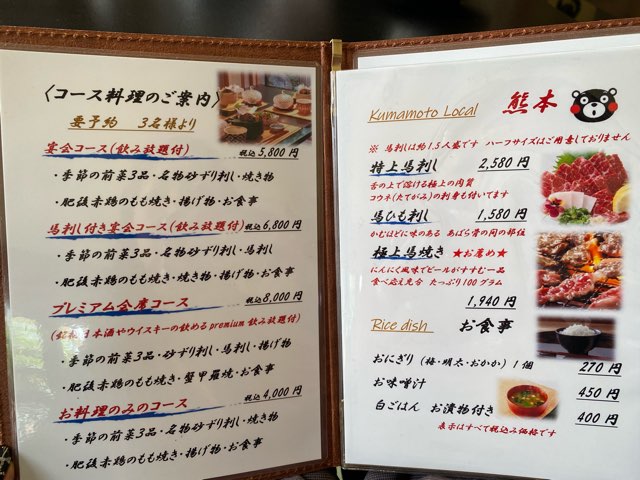 〈コース料理のご案内〉
要予約　3名様より
宴会コース(飲み放題付) 税込 5,800 円
・季節の前菜3品・名物砂ずり刺し・焼き物
・肥後赤鶏のもも焼き・揚げ物・お食事
馬刺し付き宴会コース(飲み放題付) 税込 6,800 円
・季節の前菜3品・名物砂ずり刺し・馬刺し
・肥後赤鶏のもも焼き・焼き物・揚げ物・お食事
プレミアム会席コース 税込 8,000 円
本酒やウイスキーの飲めるpremium 飲み放題付)
・季節の前菜3品・砂ずり刺し・馬刺し・揚げ物
・肥後赤鶏のもも焼き・蟹甲羅焼・お食事
お料理のみのコース 税込 4,000 円
・季節の前菜3品・名物砂ずり刺し・焼き物
・肥後赤鶏のもも焼き・揚げ物・お食事
Kumamoto Local 熊本
※ 馬刺しは約1.5人盛です ハーフサイズはご用意しておりません
特上馬刺し 2,580 円
舌の上で溶ける極上の肉質
コウネ(たてがみ)の刺身も付いてます
馬ひも刺し 1,580 円
かむほどに味のある あばら骨の間の部位
極上馬焼き ★お薦め★
にんにく風味でビールがすすむ一品
食べ応え充分 たっぷり100グラム
1,940 円
Rice dish お食事
おにぎり (梅・明太・おかか) 1個 270 円
お味噌汁 450 円
白ごはん お漬物付き 400 円
表示はすべて税込み価格です